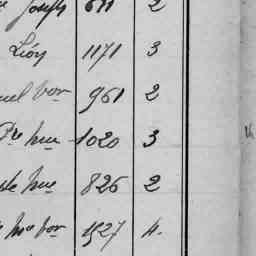 Joseph 671 2
Léon 1171 3
uel Vor 961 2
Pre hue 1020 3
hue 826 2
hue Vor 1527 4.